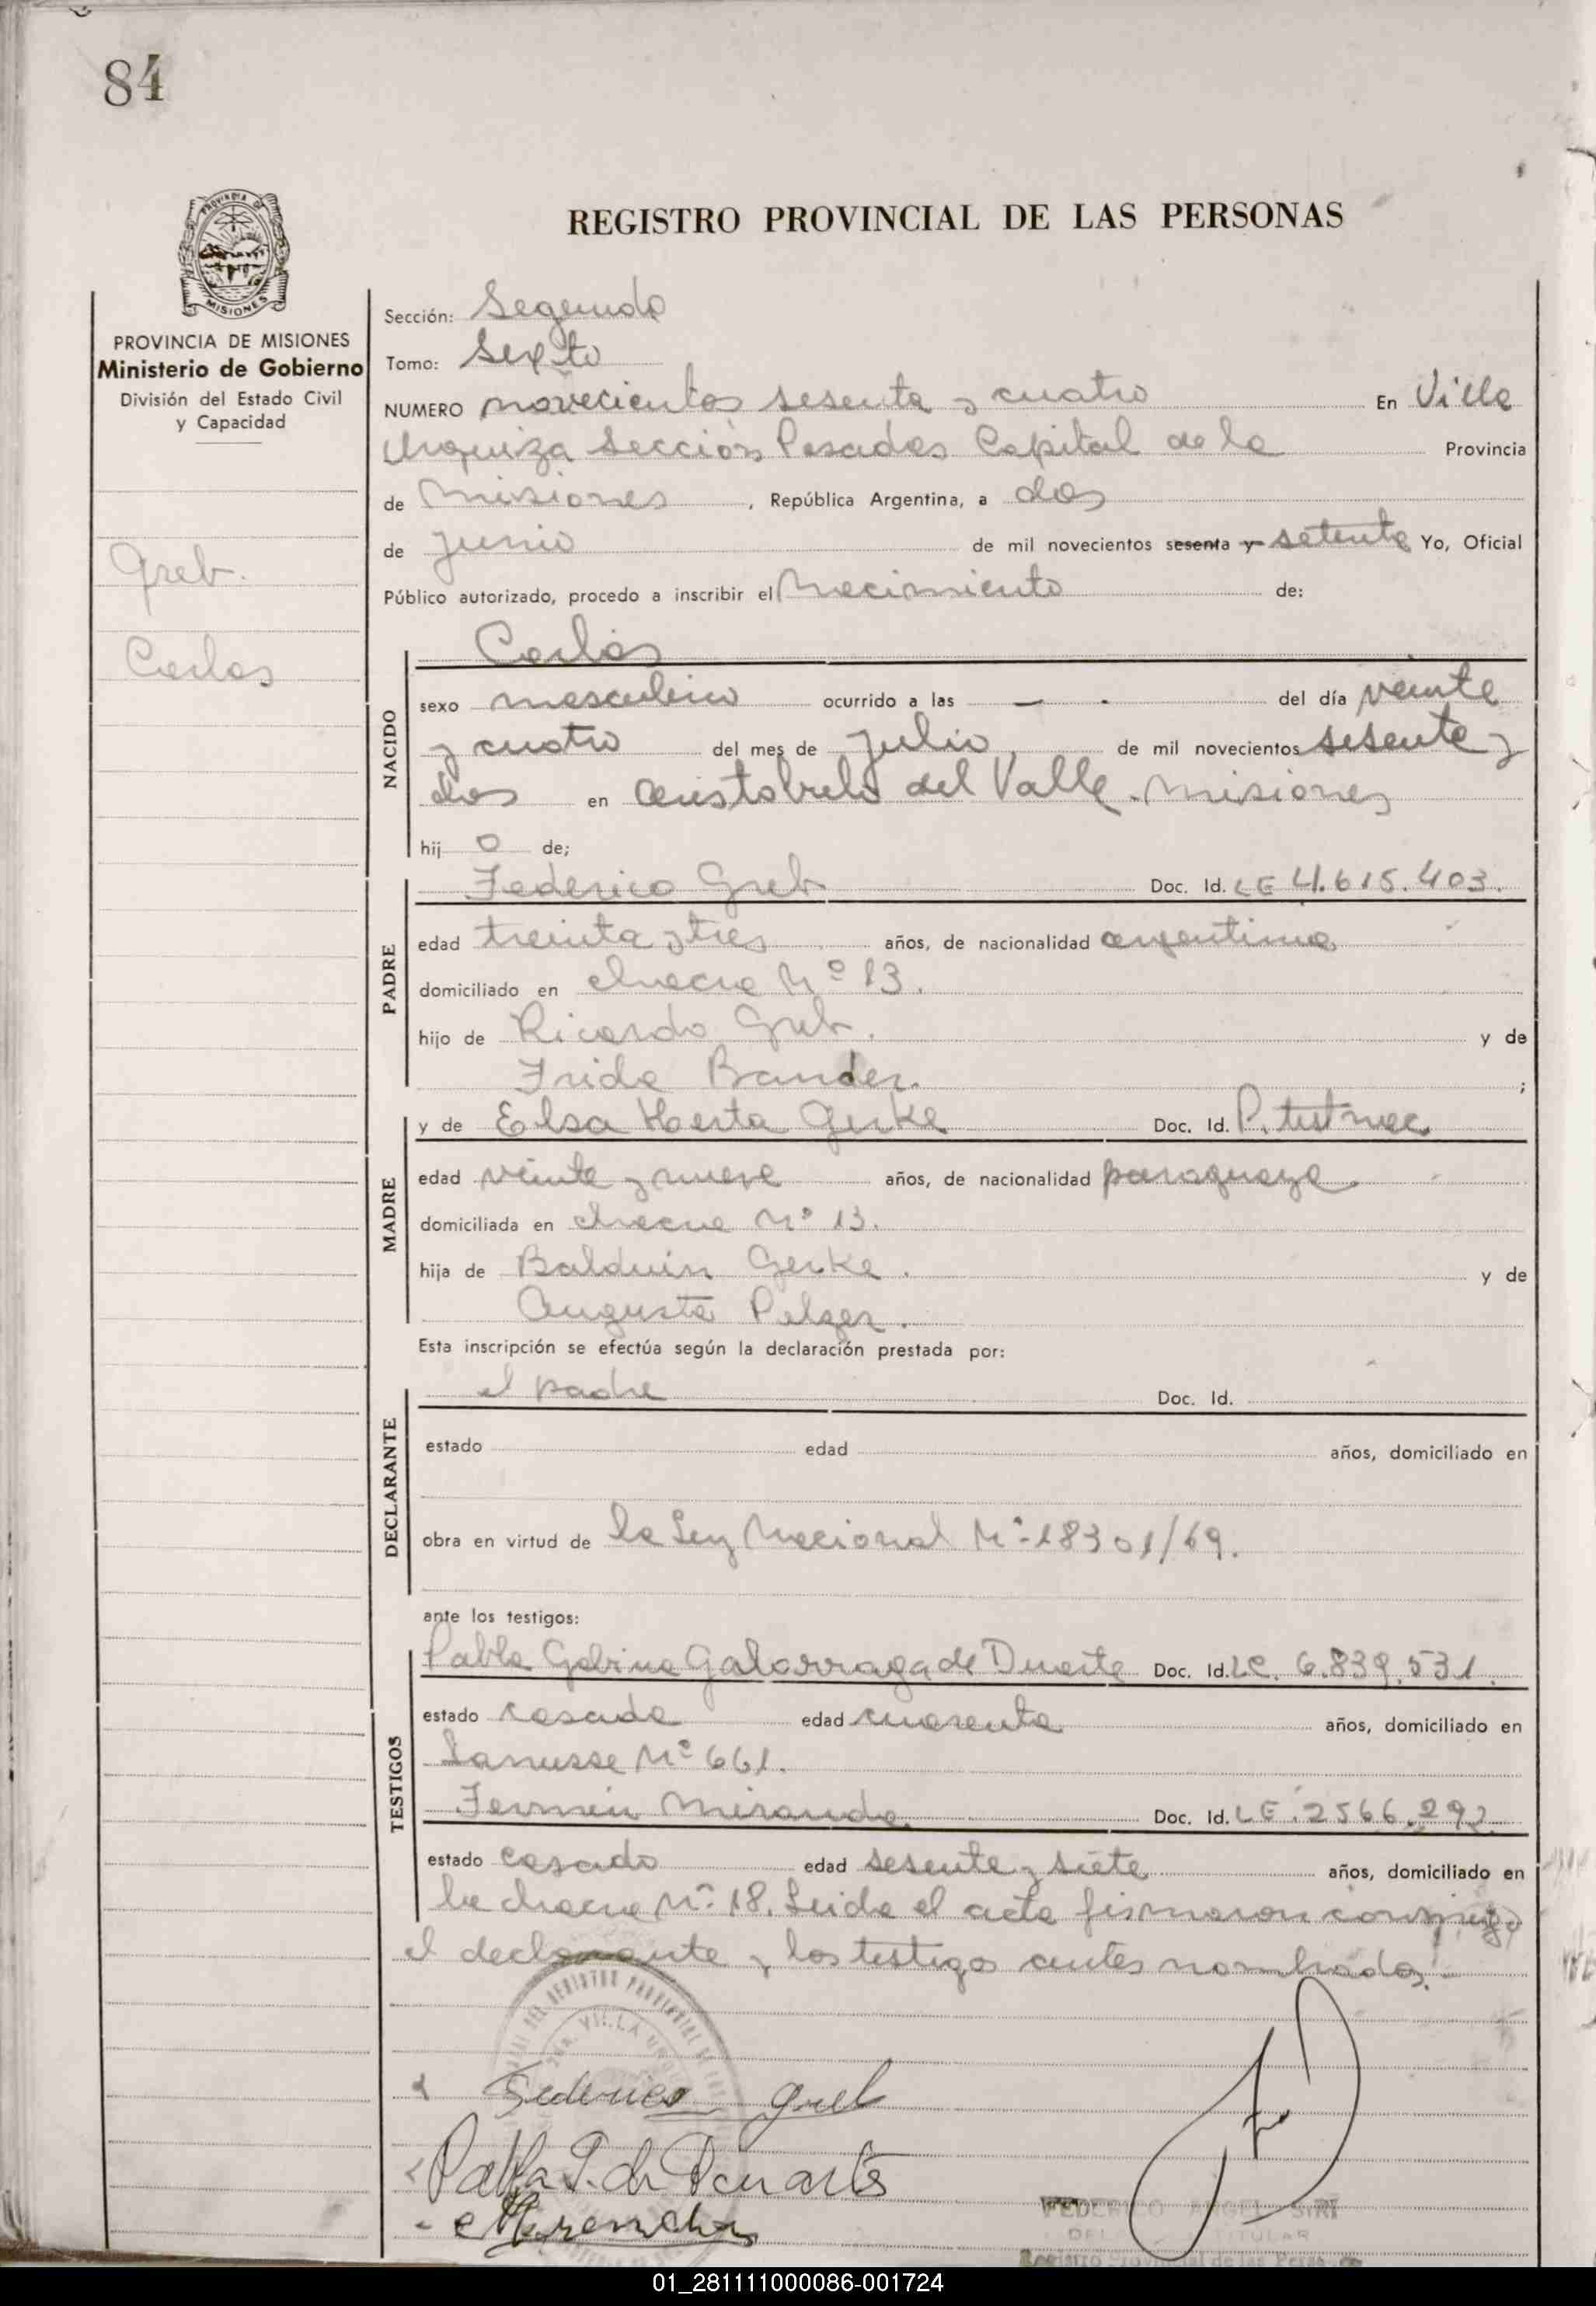 84
PROVINCIA
MISIONES
PROVINCIA DE MISIONES
Ministerio de Gobierno
División del Estado Civil
y Capacidad
Greb.
Carlos
REGISTRO PROVINCIAL DE LAS PERSONAS
Sección: Segunda
Tomo: Sexto
NUMERO novecientos sesenta y cuatro En Villa
Urquiza Sección Posadas Capital de la Provincia
de Misiones, República Argentina, a dos
de junio de mil novecientos sesenta y setenta Yo, Oficial
Público autorizado, procedo a inscribir el Nacimiento de:
NACIDO
Carlos
sexo masculino ocurrido a las — . del día veinte
y cuatro del mes de julio de mil novecientos sesenta y
dos en Aristóbulo del Valle. Misiones
hij o de;
PADRE
Federico Greb Doc. Id. LE 4.615.403.
edad treinta y tres años, de nacionalidad argentina
domiciliado en chacra Nº 13.
hijo de Ricardo Greb. y de
Frida Bander. ;
MADRE
y de Elsa Herta Gerke Doc. Id. P. test nac.
edad veinte y nueve años, de nacionalidad paraguaya
domiciliada en chacra Nº 13.
hija de Balduin Gerke. y de
Augusta Pelzer.
Esta inscripción se efectúa según la declaración prestada por:
DECLARANTE
el padre Doc. Id.
estado edad años, domiciliado en
obra en virtud de la Ley Nacional Nº 18301/69.
ante los testigos:
TESTIGOS
Pabla Gabina Galarraga de Duarte Doc. Id. LC. 6.839.531.
estado casada edad cuarenta años, domiciliado en
Lanusse Nº 661.
Fermín Miranda. Doc. Id. LE. 2566.292.
estado casado edad sesenta y siete años, domiciliado en
la chacra Nº 18. Leida el acta firmaron conmigo
el declarante y los testigos antes nombrados.
DEL REGISTRO PROVINCIAL DE
VILLA
Federico Greb
Pabla G. de Duarte
FEDERICO ANGEL SIRI
TITULAR
Registro Provincial de las Personas
01_281111000086-001724